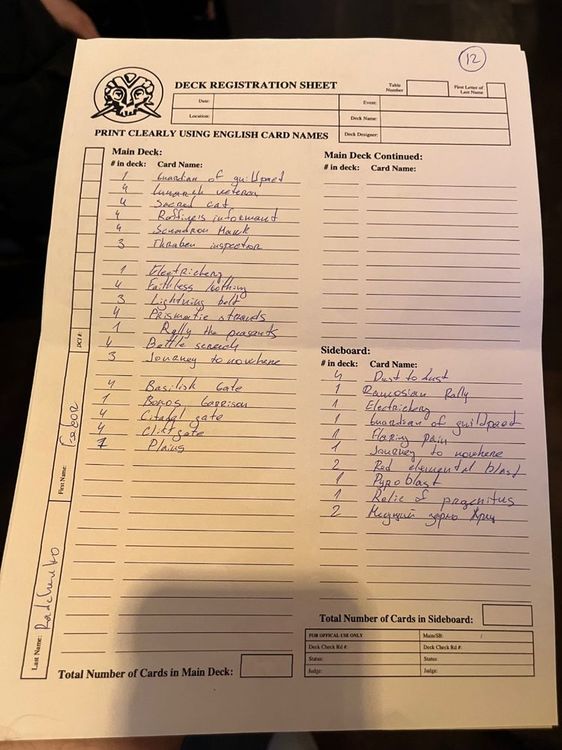 12
DECK REGISTRATION SHEET
Table Number
First Letter of Last Name
Date:
Event:
Location:
Deck Name:
Deck Designer:
PRINT CLEARLY USING ENGLISH CARD NAMES
Main Deck:
# in deck: Card Name:
1 Guardian of guildpact
4 Lunarch veteran
4 Sacred cat
4 Raffine's informant
4 Squadron Hawk
3 Thraben inspection
1 Electrickery
4 Faithless looting
3 Lightning bolt
4 Prismatic strands
1 Rally the peasants
4 Battle screech
3 Journey to nowhere
4 Basilisk Gate
1 Boros Garrison
4 Citadel gate
4 Cliffgate
7 Plains
Total Number of Cards in Main Deck:
Main Deck Continued:
# in deck: Card Name:
Sideboard:
# in deck: Card Name:
4 Dust to dust
1 Ramosian Rally
1 Electrickery
1 Guardian of guildpact
1 Flaring pain
1 Journey to nowhere
2 Red elemental blast
1 Pyroblast
1 Relic of progenitus
2
Total Number of Cards in Sideboard:
FOR OFFICAL USE ONLY Main/SB: /
Deck Check Rd #: Deck Check Rd #:
Status: Status:
Judge: Judge:
DCI #:
First Name:
Last Name: Radchenko